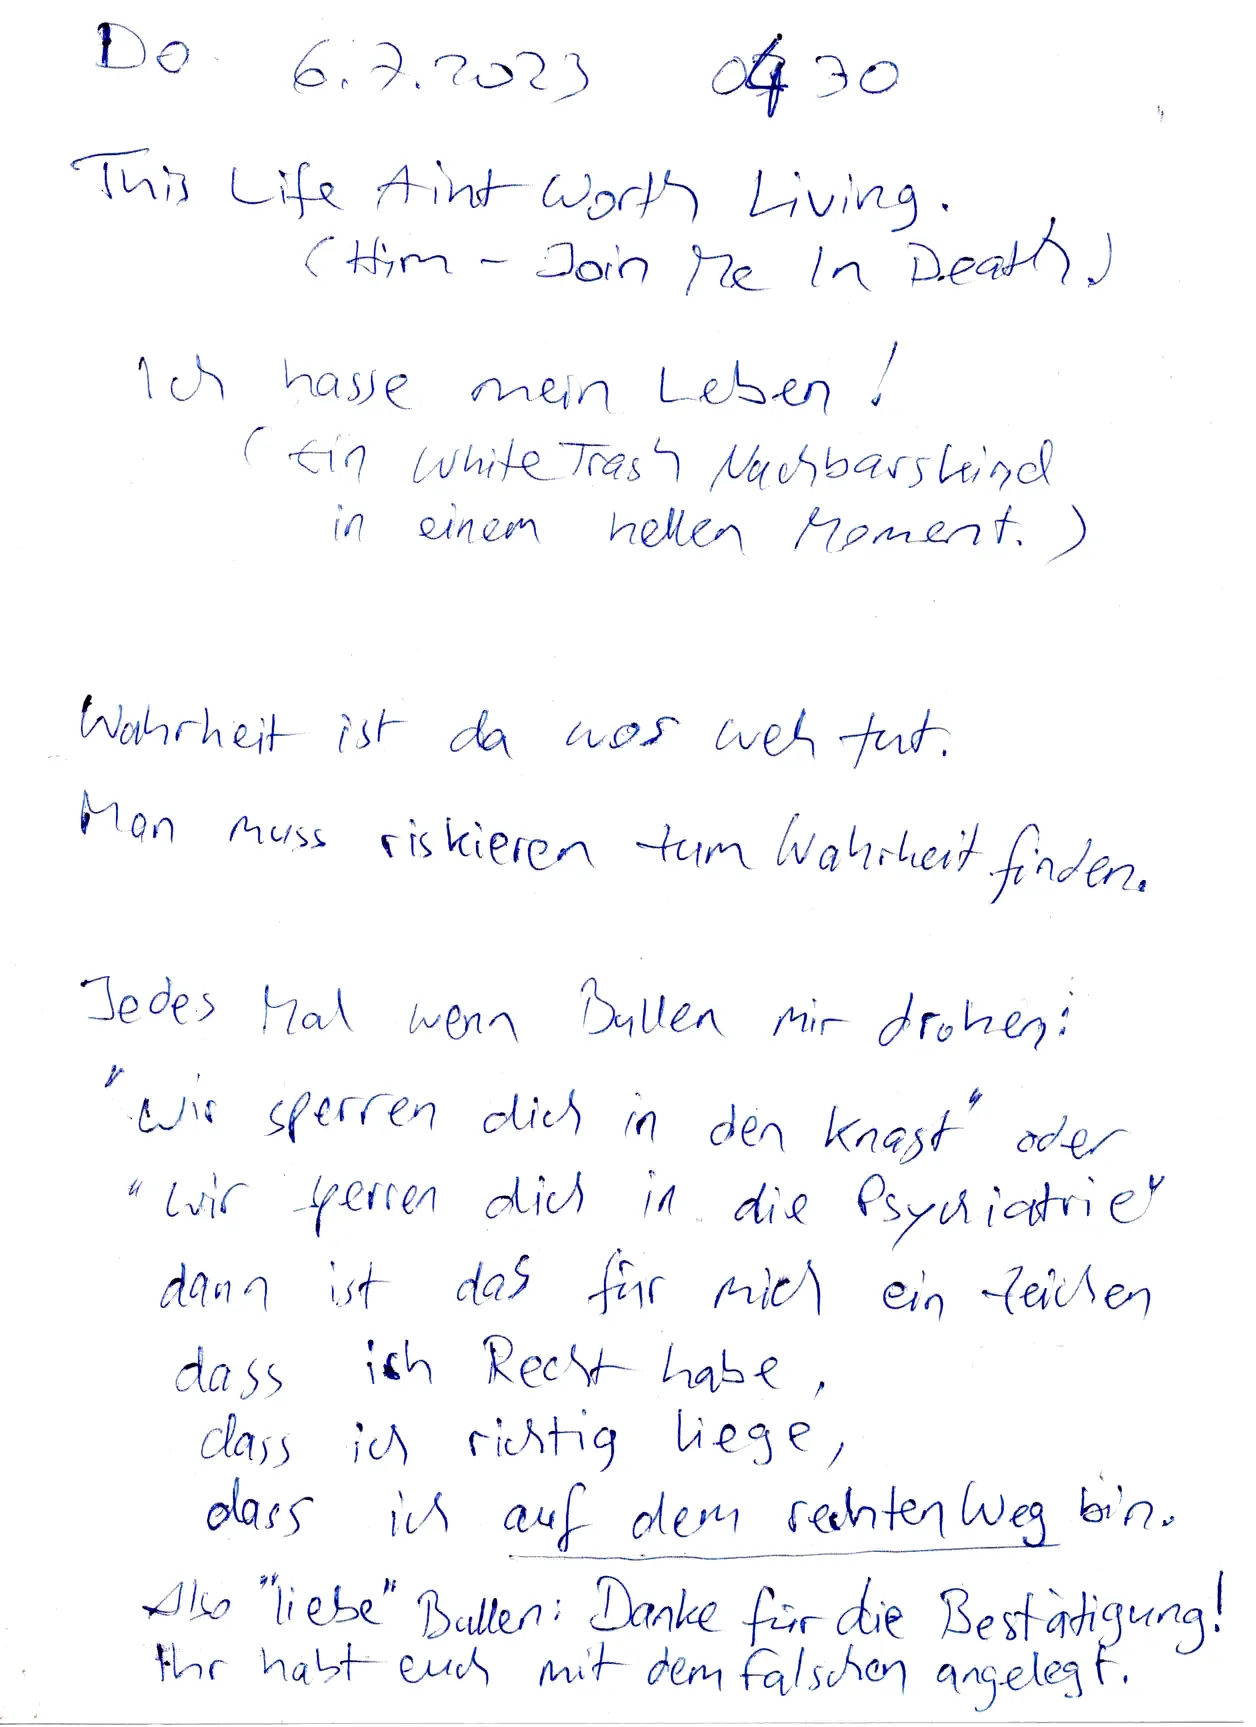 Do 6.7.2023 0430
This Life Aint Worth Living.
(Him - Join Me In Death.)
Ich hasse mein Leben!
(Ein White Trash Nachbarskind
in einem hellen Moment.)
Wahrheit ist da wos weh tut.
Man muss riskieren zum Wahrheit finden.
Jedes Mal wenn Bullen mir drohen:
"Wir sperren dich in den Knast" oder
"Wir sperren dich in die Psychiatrie"
dann ist das für mich ein Zeichen
dass ich Recht habe,
dass ich richtig liege,
dass ich auf dem rechten Weg bin.
Also "liebe" Bullen: Danke für die Bestätigung!
Ihr habt euch mit dem falschen angelegt.